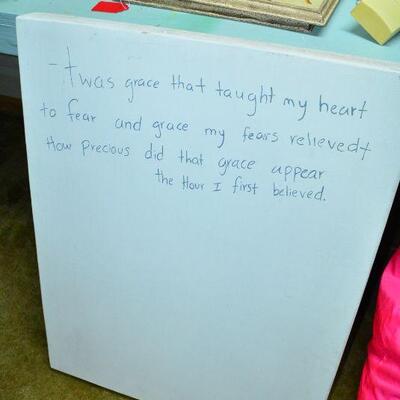 - Twas grace that taught my heart
to fear and grace my fears relieved +
How Precious did that grace appear
the Hour I first believed.